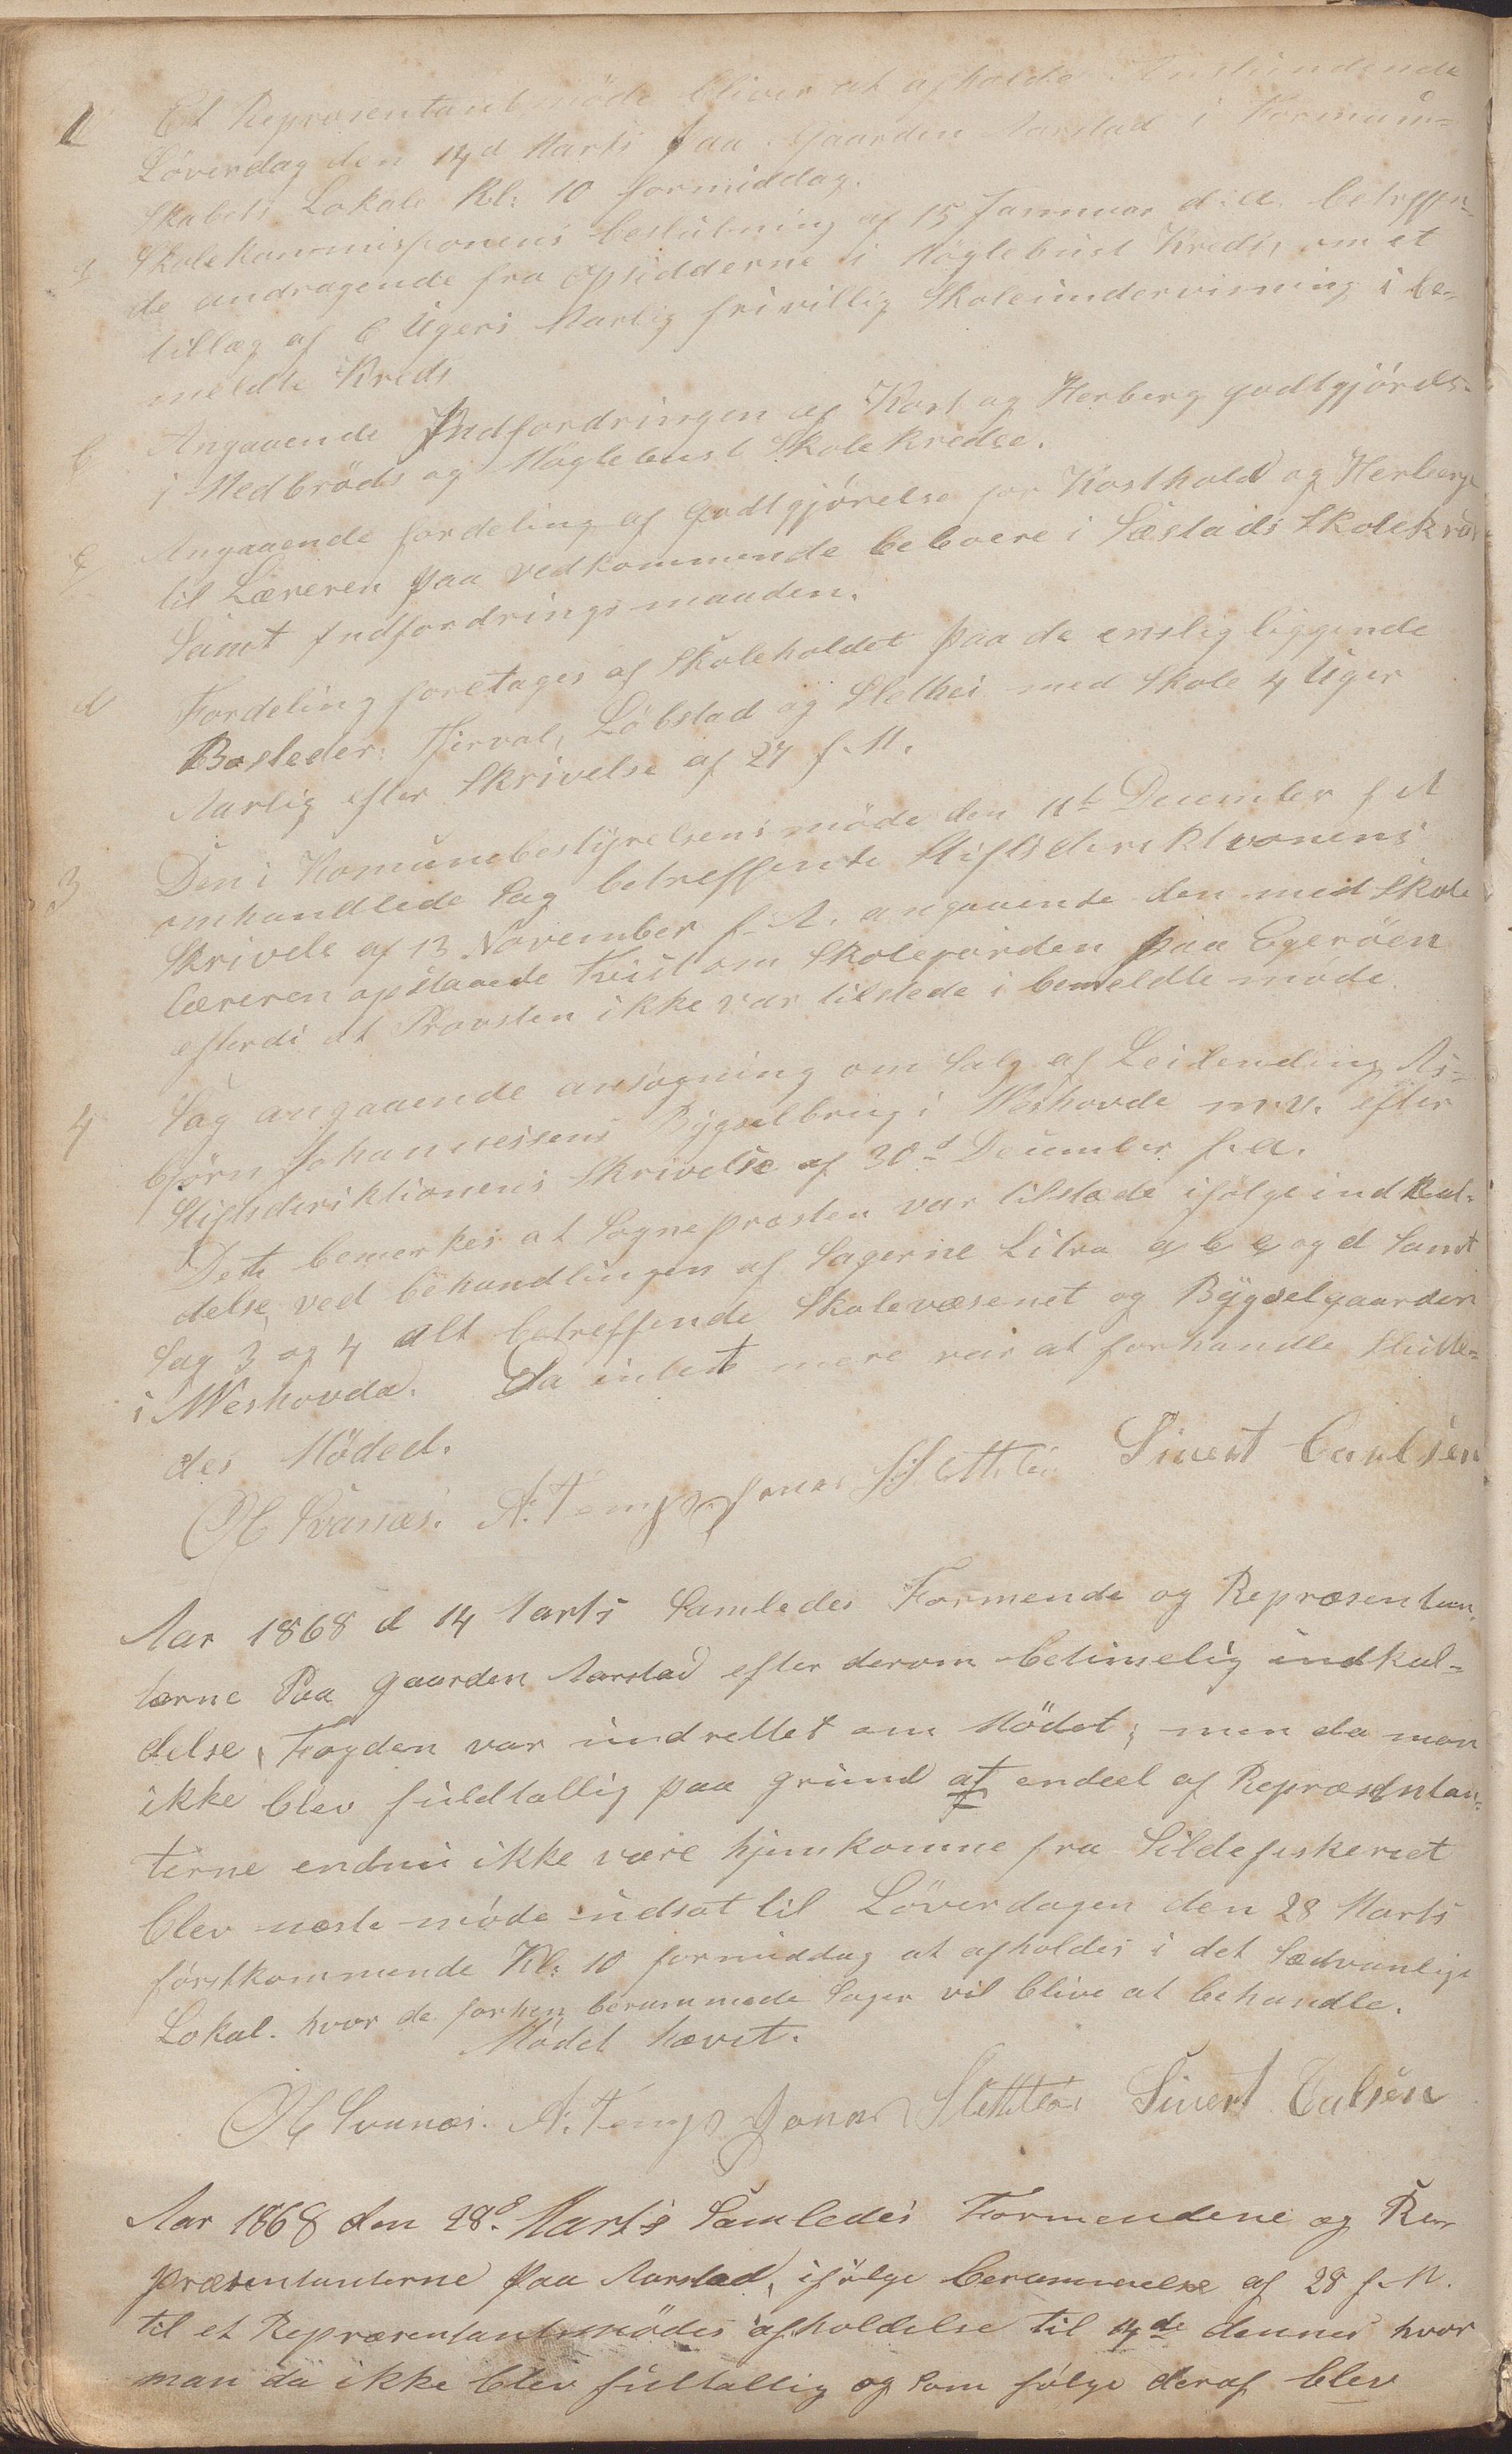 1 Et Repræsentantmöde bliver at afholde Anstundende
Löverdag den 14d Marts paa Gaarden Aarstad i Formam=
Skabets Lokale Kl: 10 formiddag.
a Skolekommissponens beslutning af 15 Jannuar d. A. betreffen=
de andragende fra Opsidderne i Möglebust Kreds, om et
tillæg af 6 Ugers Aarlig frivillig Skoleundervisning i be=
meldte Kreds
b Angaaende Indfordringen af Kost og Herberg godtgjörels-
i Medbröds og Möglebust Skolekredse.
c Angaaende fordeling af Godtgjörelse for Kosthold og Herberge
til Læreren paa vedkommende beboere i Sæstads Skolekred
Samt Indfordringsmaaden.
d Fordeling foretages af Skoleholdet paa de enslig liggende
Bosteder: Tjerval, Löbstad og Slethei med Skole 4 Uger
Aarlig efter Skrivelse af 27 f. M.
3 Den i Komunebestyrelsens möde den 11te December f A
omhandlede Sag betreffende Stiftsderiktionens
Skrivels af 13 November f. A. angaaende den med Skole
læreren opstaaede Tvist om Skolejorden paa Egeröen
efterdi at Provsten ikke var tilstede i bemeldte möde.
4 Sag angaaende ansögning om Salg af Leilending As=
björn Johannessens Bygselbrug i Meshovde m. v. efter
Stiftsderiktionens Skrivelse af 30d December f. A.
Dets bemerkes at Sognepræsten var tilstæde ifölge indkal=
delse, ved behandlingen af Sagerne Litra a b c og d Samt
Sag 3 og 4 alt betreffende Skolevæsenet og Bygselgaarden
i Meshovda. Da intet mere var at forhandle Slutte=
des Möded.
O H Svanæs. A. Tengs Jonas Sletthei Sivert Carlsen
Aar 1868 d 14 Marts Samledes Formende og Repræsentan,
tærne Paa gaarden Aarstad efter derom betimelig indkal=
delse, Fogden var undrettet om Mödet; men da man
ikke blev fuldtallig paa grund af endeel af Repræsentan=
terne endnu ikke være hjemkomne fra Sildefiskeriet
blev næste möde udsat til Löverdagen den 28 Marts
förstkommende Kl: 10 formiddag at afholdes i det Sædvanlige
Lokal. hvor de forhen berammede Sager vil blive at behandle.
Mödet hævet.
O H Svanæs. A. Tengs Jonas Sletthei Sivert Calsen
Aar 1868 den 28d. Marts Samledes Formendene og Re=
præsentanterne paa Aarstad, ifölge berammelse af 28 f. M.
til et Repræsentantsmödes afholdelse til 14de dennes hvor
man da ikke blev fultallig og Som fölge deraf blev